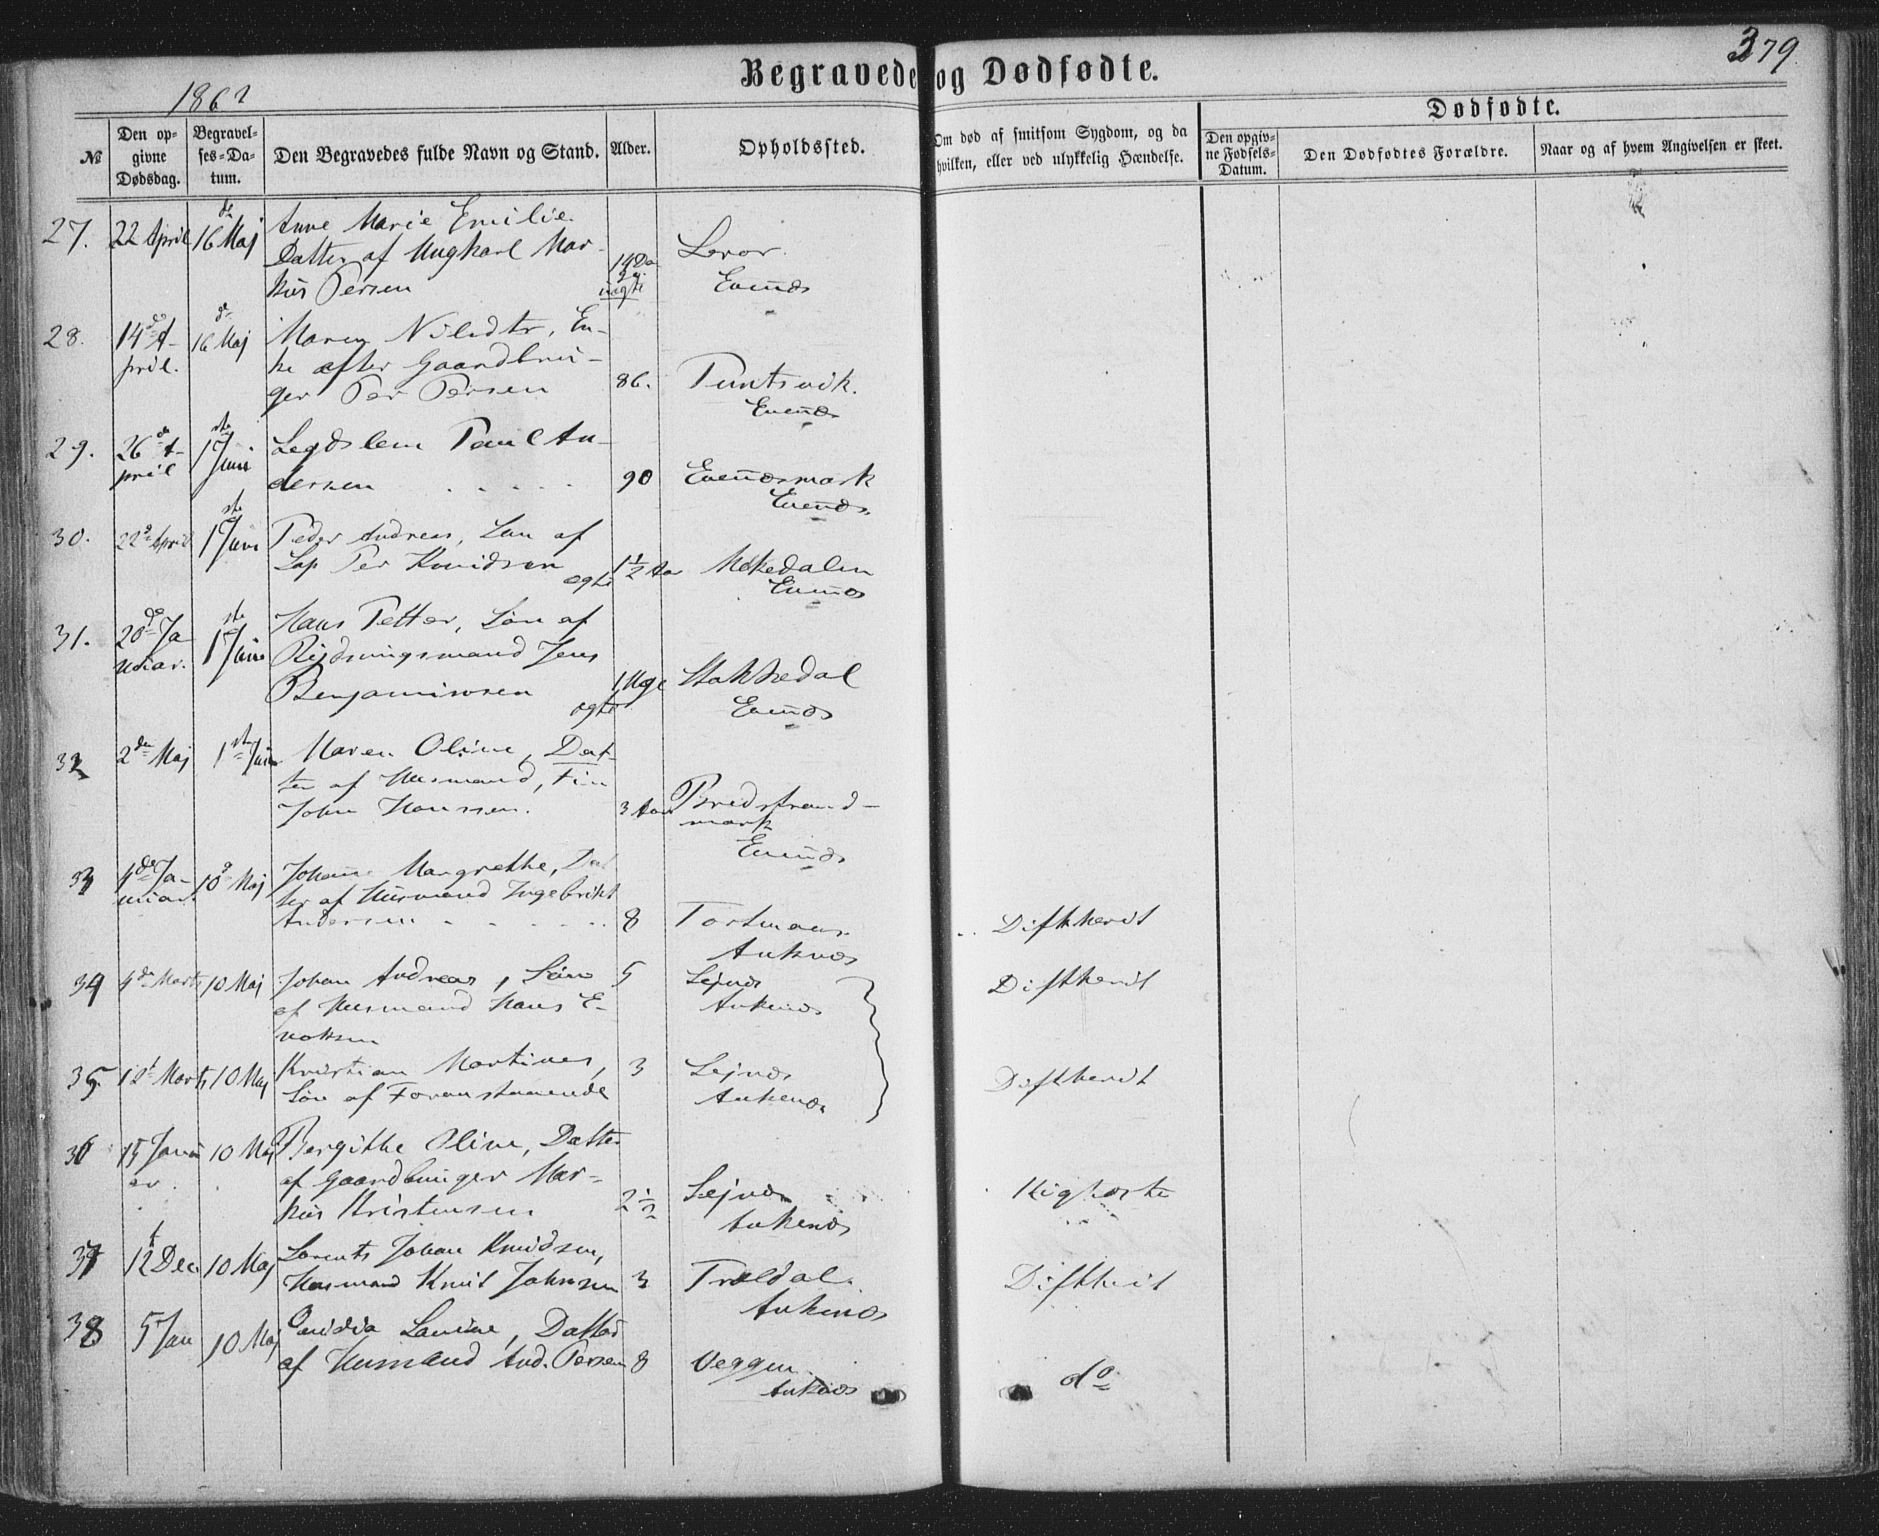 379.
Begravede og Dødfødte.
1862
№
Den op-
givne
Dødsdag.
Begravel-
ses-Da-
tum.
Den Begravedes fulde Navn og Stand.
Alder.
Opholdssted.
Om død af smitsom Sygdom, og da
hvilken, eller ved ulykkelig Hændelse.
Dødfødte.
Den opgiv-
ne Fødsels-
Datum.
Den Dødfødtes Forældre.
Naar og af hvem Angivelsen er skeet.
27. 22 April 16de Maj Anne Marie Emilie
Datter af Ungkarl Mar-
kus Persen 14 Da
uægte
Leror
Evenæs
28. 14de A-
pril. 16de Maj Maren Nilsdtr, En-
ke efter Gaardbru-
ger Per Persen 86. Tuntsvik.
Evenæs
29. 26de A-
pril 1ste Juni Lægdslem Paul An-
dersen 90 Evenæsmark
Evenæs
30. 22de April 1ste Juni Peder Andreas, Søn af
Lap Per Knudsen
ægte 1½ Aar
Evenæs
31. 20de Ja-
nuar. 1ste Juni Hans Petter, Søn af
Rydningsmand Jens
Benjaminsen
ægte 1 Uge Stokkedal
Evenæs
32 2den Maj 1ste Juni Maren Oline, Dat-
ter af Husmand, Fin
John Hanssen. 3 Aar Bredstrand-
mark
Evenæs
33 4de Ja-
nuar 10de Maj Johanne Margrethe, Dat
ter af Husmand Ingebrikt
Andersen 8
Ankenæs
Difthherit
34 4de Marts 10 Maj Johan Andreas, Søn
af Husmand Hans E-
noksen 5 Lejnæs
Ankenæs
Difthherit
35. 12t Marts 10 Maj Kristian Martines,
Søn af Foranstaaende 3 Lejnæs
Ankenæs
Difthherit
36 15 Janu
ar. 10 Maj Bergithe Oline, Datter
af Gaardbruger Mar-
kus Kristensen 2½ Lejnæs
Ankenæs
Kighoste
37 12t Dec 10 Maj Lorents Johan Knudsen,
Husmand Knut Johnsen 3 Trældal
Ankenæs
Difthherit
38 5 Jan 10 Maj Lavine, Datter
af Husmand And. Persen 8 Veggen
Ankenæs
do